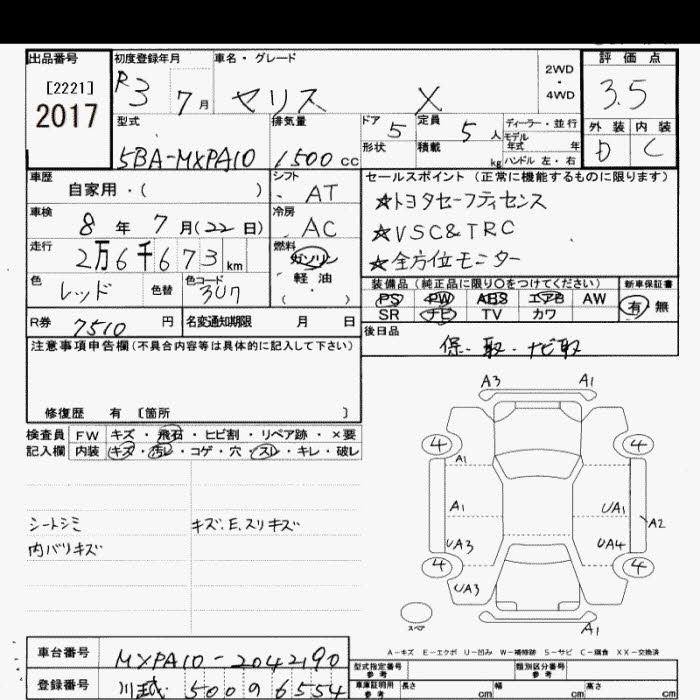 出品番号 初度登録年月 車名・グレード 評価点
[2221] R3 7月 ヤリス X 2WD・4WD 3.5
2017
型式 排気量 ドア 5 定員 5人 ディーラー・並行 外装 内装
モデル年式 年 D C
5BA-MXPA10 1500cc 形状 積載 kg ハンドル 左・右
車歴 シフト セールスポイント (正常に機能するものに限ります)
自家用・( ) AT ☆トヨタセーフティセンス
車検 冷房 ☆VSC&TRC
8年 7月(22日) AC ☆全方位モニター
走行 2万6千673km 燃料 ガソリン
軽油
(・)
色 レッド 色替 色コード 3U7
装備品 (純正品に限り〇をつけてください) 新車保証書
PS PW ABS エアB AW 有 無
SR ナビ TV カワ
R券 7510円 名変通知期限 月 日 後日品
保・取・ナビ取
注意事項申告欄(不具合内容等は具体的に記入して下さい)
修復歴 有 [箇所 ]
検査員 FW キズ・飛石・ヒビ割・リペア跡・×要
記入欄 内装 キズ・汚レ・コゲ・穴・スレ・キレ・破レ
シートシミ キズ.E.スリキズ
内バリキズ
A3 A1
4 4
A1
A1 UA1 A2
UA3 UA4
4 4
UA3
スペア A1
A-キズ E-エクボ U-凹み W-補修跡 S-サビ C-腐食 XX-交換済
車台番号 MXPA10-2042190 型式指定番号 参考 類別区分番号 参考
登録番号 川越 500 す 6554 車庫証明用 参考 長さ cm 幅 cm 高さ cm